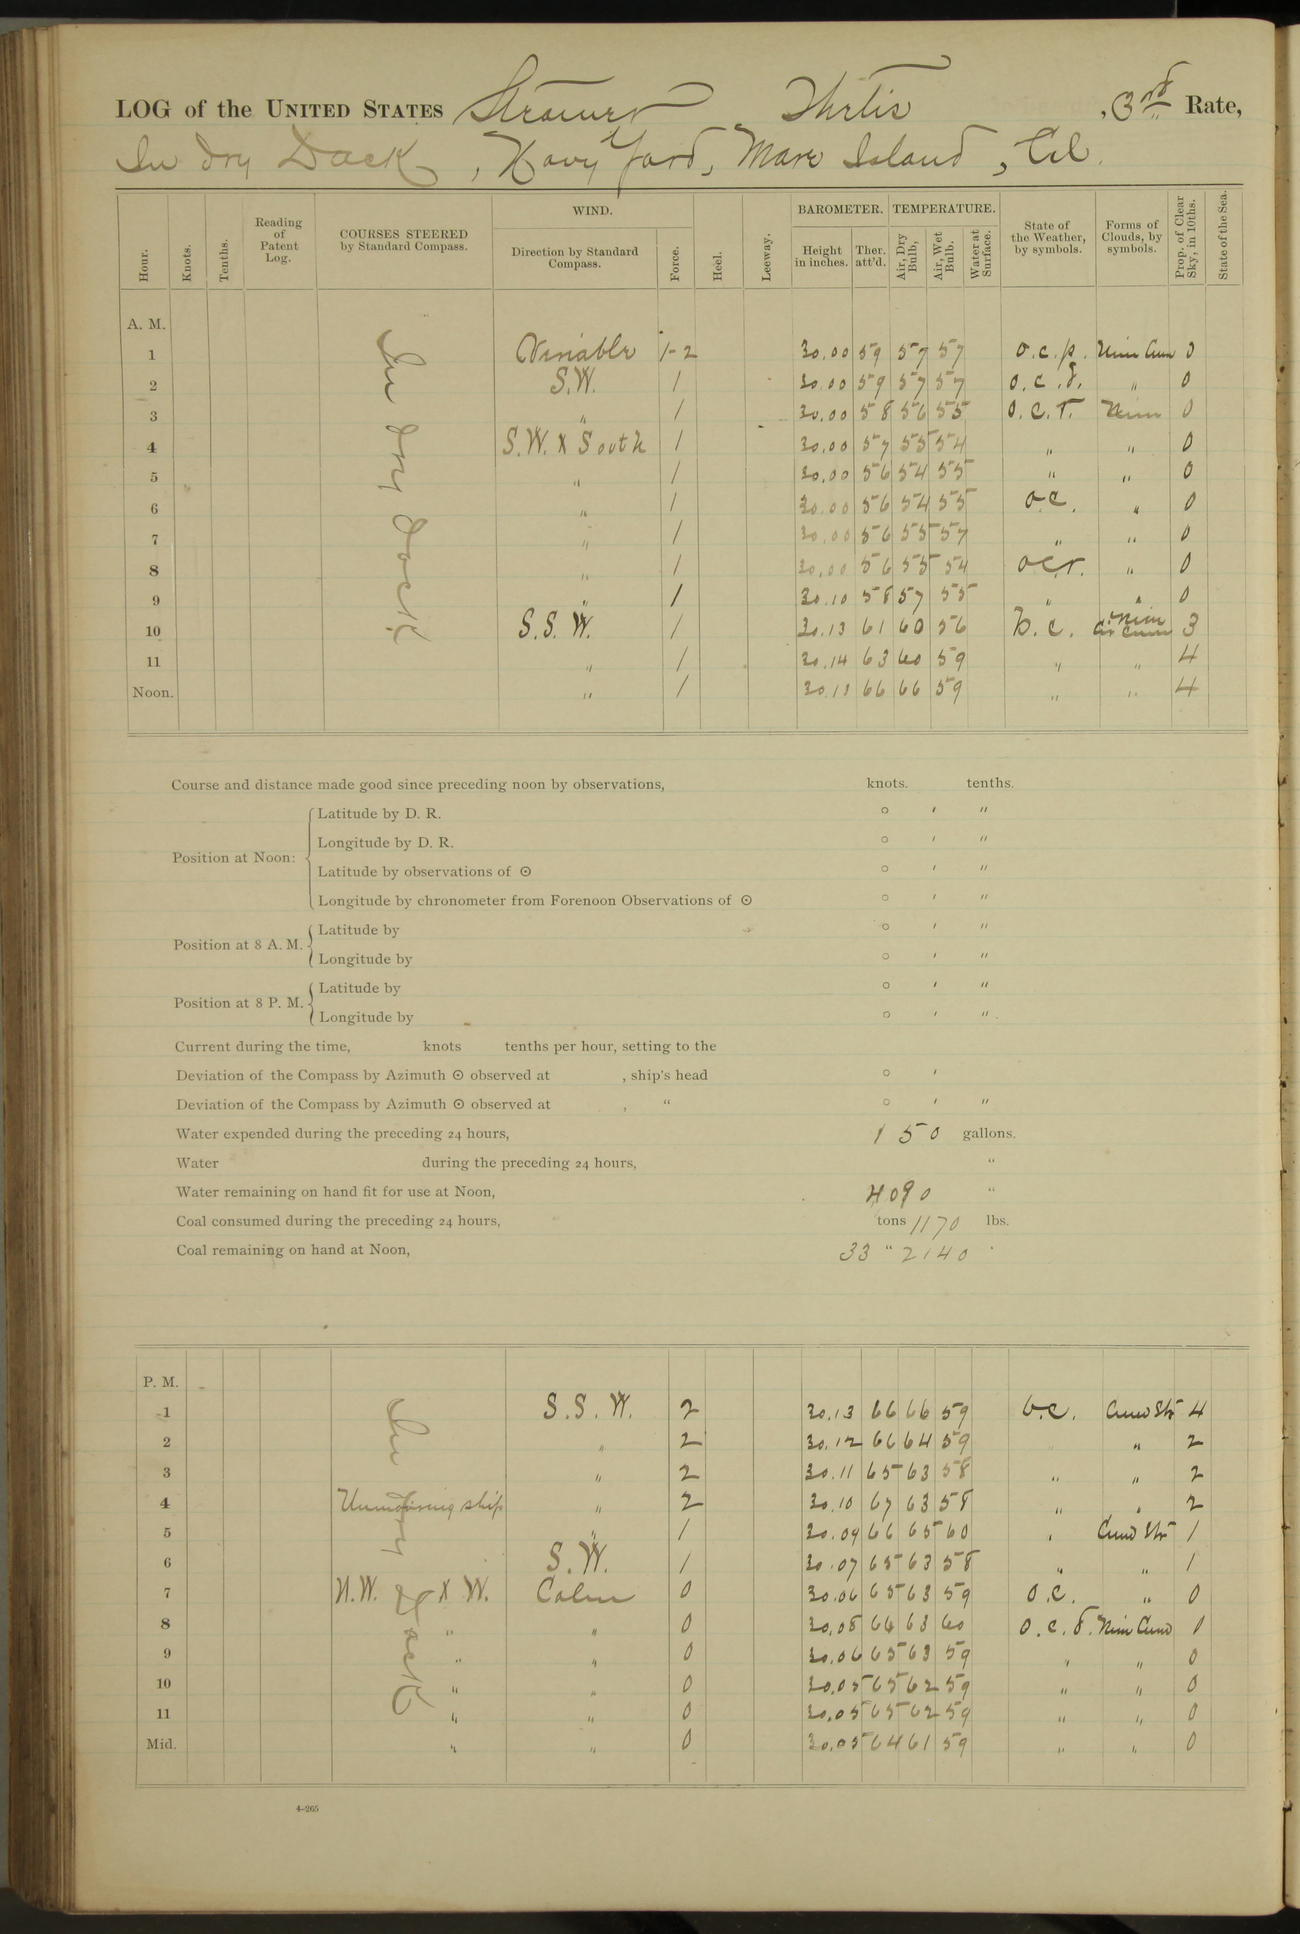 LOG of the UNITED STATES Steamer Thetis, 3rd Rate,
In dry Dock, Navy Yard, Mare Island, Cal.
Hour. Knots. Tenths. Reading of Patent Log. COURSES STEERED by Standard Compass. WIND. Direction by Standard Compass. Force. Heel. Leeway. BAROMETER. Height in inches. Ther. att'd. TEMPERATURE. Air, Dry Bulb, Air, Wet Bulb. Water at Surface. State of the Weather, by symbols. Forms of Clouds, by symbols. Prop. of Clear Sky, in 10ths. State of the Sea.
A. M.
In dry Dock
1 Variable 1-2 30.00 59 57 57 o.c.p. Nim Cum 0
2 S.W. 1 30.00 59 57 57 o.c.d. " 0
3 " 1 30.00 58 56 55 o.c.r. Nim 0
4 S.W. x South 1 30.00 57 55 54 " " 0
5 " 1 30.00 56 54 55 " " 0
6 " 1 30.00 56 54 55 o.c. " 0
7 " 1 30.00 56 55 57 " " 0
8 " 1 30.00 56 55 54 ocr. " 0
9 " 1 30.10 58 57 55 " " 0
10 S.S.W. 1 30.13 61 60 56 b.c. Nim Cir Cum 3
11 " 1 30.14 63 60 59 " " 4
Noon. " 1 30.13 66 66 59 " " 4
Course and distance made good since preceding noon by observations, knots. tenths.
Position at Noon:
Latitude by D. R. ° ′ ″
Longitude by D. R. ° ′ ″
Latitude by observations of ☉ ° ′ ″
Longitude by chronometer from Forenoon Observations of ☉ ° ′ ″
Position at 8 A. M.
Latitude by ° ′ ″
Longitude by ° ′ ″
Position at 8 P. M.
Latitude by ° ′ ″
Longitude by ° ′ ″
Current during the time, knots tenths per hour, setting to the
Deviation of the Compass by Azimuth ☉ observed at , ship's head ° ′
Deviation of the Compass by Azimuth ☉ observed at , “ ° ′ ″
Water expended during the preceding 24 hours, 150 gallons.
Water during the preceding 24 hours, “
Water remaining on hand fit for use at Noon, 4090 “
Coal consumed during the preceding 24 hours, tons 1170 lbs.
Coal remaining on hand at Noon, 33 “ 2140 "
P. M.
In dry Dock
1 S.S.W. 2 30.13 66 66 59 b.c. Cum Str 4
2 " 2 30.12 66 64 59 " " 2
3 " 2 30.11 65 63 58 " " 2
4 Unmooring ship " 2 30.10 67 63 58 " " 2
5 " 1 30.09 66 65 60 " Cum Str 1
6 S.W. 1 30.07 65 63 58 " " 1
7 N.W. x W. Calm 0 30.06 65 63 59 o.c. " 0
8 " " 0 30.08 66 63 60 o.c.d. Nim Cum 0
9 " " 0 30.06 65 63 59 " " 0
10 " " 0 30.05 65 62 59 " " 0
11 " " 0 30.05 65 62 59 " " 0
Mid. " " 0 30.05 64 61 59 " " 0
4-265